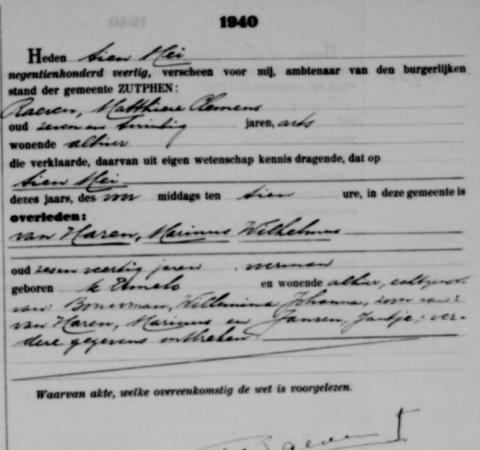 1940
Heden tien Mei
negentienhonderd veertig, verscheen voor mij, ambtenaar van den burgerlijken
stand der gemeente ZUTPHEN:
Raeven, Matthiere Clemens
oud zeven en twintig jaren, arts
wonende alhier
die verklaarde, daarvan uit eigen wetenschap kennis dragende, dat op
tien Mei
dezes jaars, des voor middags ten tien ure, in deze gemeente is
overleden:
van Haren, Marinus Wilhelmus
oud zesenveertig jaren
geboren te Ermelo en wonende alhier, echtgenoot
van: Bouwman, Willemina Johanna, zoon van:
van Haren, Marinus en Jansen, Jantje; ver-
dere gegevens ontbreken
Waarvan akte, welke overeenkomstig de wet is voorgelezen.